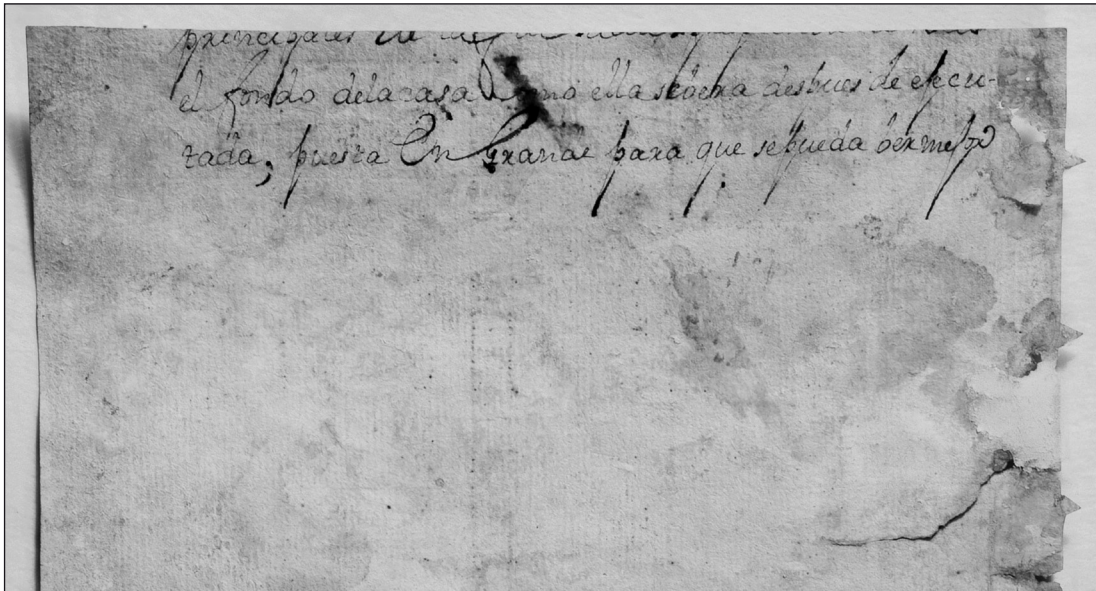 principales de
el fondo dela casa como ella sebera desbues de efecu-
tada, puesta En Grande para que sepueda ber mejor